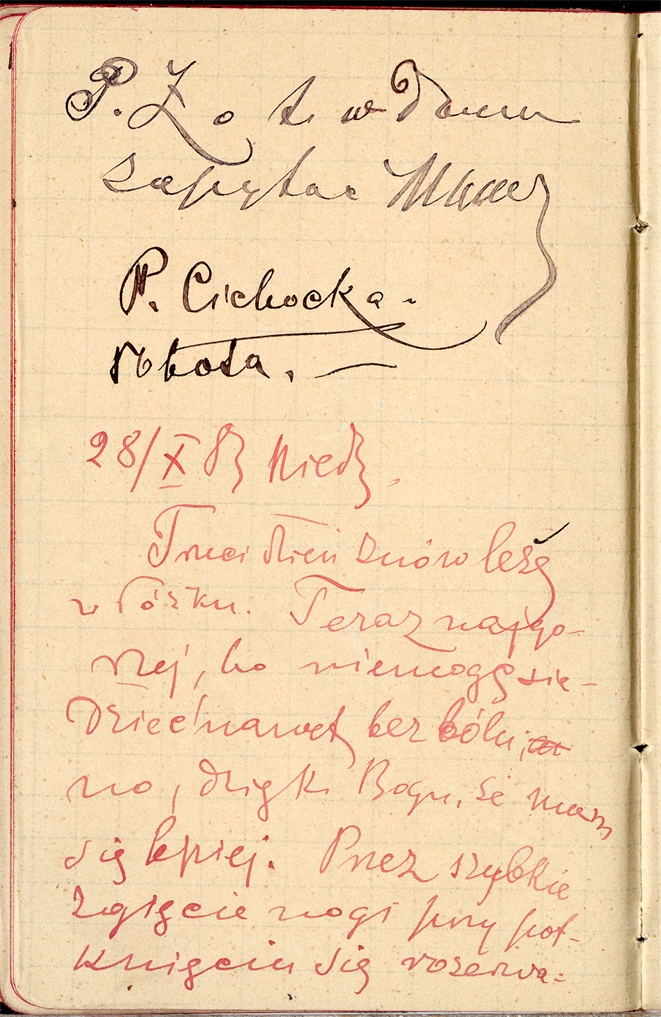 P. Z o t. w domu
zapytać
P. Cichocka.
robota. —
28/X 83 Niedz.
Trzeci dzień znów leżę
w łóżku. Teraz najgo-
rzej, bo niemogę sie-
dzieć nawet bez bólu,
no, dzięki Bogu, że mam
się lepiej. Przez szybkie
zgięcie nogi przy pot-
knięciu się rozerwa=